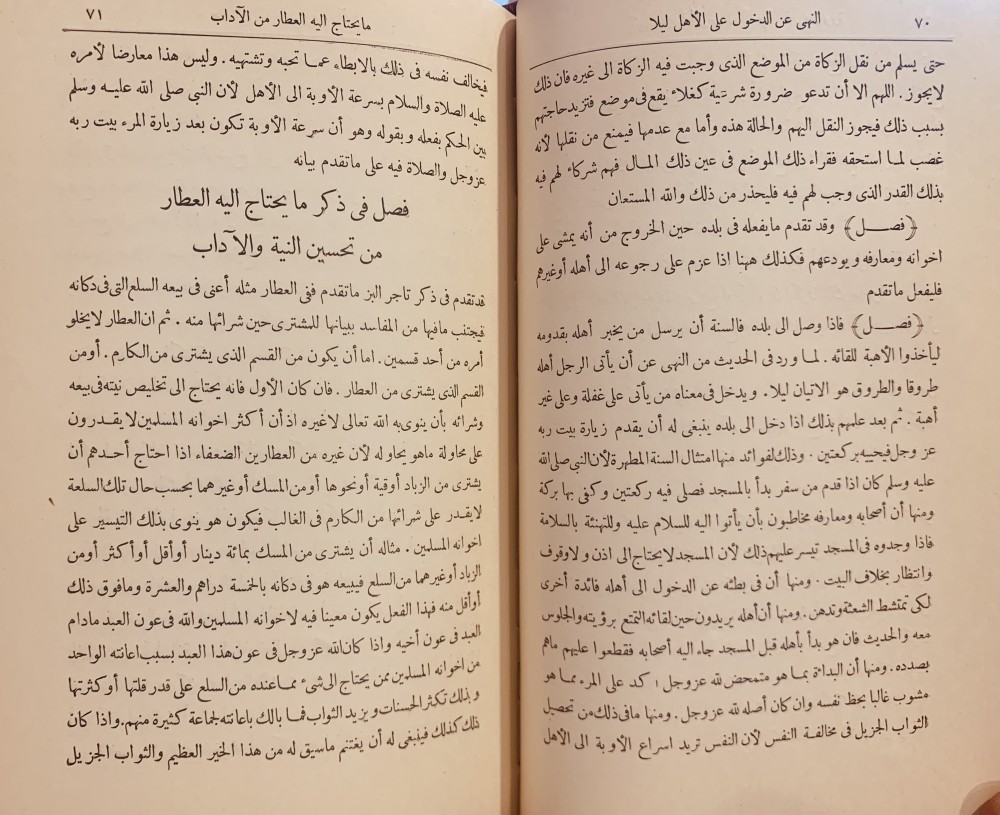 ٧٠
النهى عن الدخول على الأهل ليلا
حتى يسلم من نقل الزكاة من الموضع الذى وجبت فيه الزكاة الى غيره فان ذلك
لايجوز . اللهم الا أن تدعو ضرورة شرعية كغلاء يقع فى موضع فتزيد حاجتهم
بسبب ذلك فيجوز النقل اليهم والحالة هذه وأما مع عدمها فيمنع من نقلها لأنه
غصب لما استحقه فقراء ذلك الموضع فى عين ذلك المال فهم شركاء لهم فيه
بذلك القدر الذى وجب لهم فيه فليحذر من ذلك والله المستعان
﴿فصـــل﴾ وقد تقدم مايفعله فى بلده حين الخروج من أنه يمشى على
اخوانه ومعارفه ويودعهم فكذلك ههنا اذا عزم على رجوعه الى أهله أوغيرهم
فليفعل ماتقدم
﴿فصـــل﴾ فاذا وصل الى بلده فالسنة أن يرسل من يخبر أهله بقدومه
ليأخذوا الأهبة للقائه . لما ورد فى الحديث من النهى عن أن يأتى الرجل أهله
طروقا والطروق هو الاتيان ليلا . ويدخل فى معناه من يأتى على غفلة وعلى غير
أهبة . ثم بعد علمهم بذلك اذا دخل الى بلده ينبغى له أن يقدم زيارة بيت ربه
عز وجل فيحييه بركعتين . وذلك لفوائد منها امتثال السنة المطهرة لأن النبى صلى الله
عليه وسلم كان اذا قدم من سفر بدأ بالمسجد فصلى فيه ركعتين وكفى بها بركة
ومنها أن أصحابه ومعارفه مخاطبون بأن يأتوا اليه للسلام عليه وللتهنئة بالسلامة
فاذا وجدوه فى المسجد تيسر عليهم ذلك لأن المسجد لايحتاج الى اذن ولا وقوف
وانتظار بخلاف البيت . ومنها أن فى بطئه عن الدخول الى أهله فائدة أخرى
لكى تمتشط الشعثة وتدهن . ومنها أن أهله يريدون حين لقائه التمتع برؤيته والجلوس
معه والحديث فان هو بدأ بأهله قبل المسجد جاء اليه أصحابه فقطعوا عليهم ماهم
بصدده . ومنها أن البداءة بما هو متمحض لله عز وجل آكد على المرء مما هو
مشوب غالبا بحظ نفسه وان كان أصله لله عز وجل . ومنها مافى ذلك من تحصيل
الثواب الجزيل فى مخالفة النفس لأن النفس تريد اسراع الأوبة الى الأهل
مايحتاج اليه العطار من الآداب
٧١
فيخالف نفسه فى ذلك بالابطاء عما تحبه وتشتهيه . وليس هذا معارضا لأمره
عليه الصلاة والسلام بسرعة الأوبة الى الأهل لأن النبى صلى الله عليه وسلم
بين الحكم بفعله وبقوله وهو أن سرعة الأوبة تكون بعد زيارة المرء بيت ربه
عز وجل والصلاة فيه على ماتقدم بيانه
فصل فى ذكر مايحتاج اليه العطار
من تحسين النية والآداب
قد تقدم فى ذكر تاجر البز ماتقدم ففى العطار مثله أعنى فى بيعه السلع التى فى دكانه
فيجتنب مافيها من المفاسد ببيانها للمشترى حين شرائها منه . ثم ان العطار لايخلو
أمره من أحد قسمين . اما أن يكون من القسم الذى يشترى من الكارم . أومن
القسم الذى يشترى من العطار . فان كان الأول فانه يحتاج الى تخليص نيته فى بيعه
وشرائه بأن ينوى به الله تعالى لاغيره اذ أن أكثر اخوانه المسلمين لايقدرون
على محاولة ماهو يحاوله لأن غيره من العطارين الضعفاء اذا احتاج أحدهم أن
يشترى من الزباد أوقية أونحوها أومن المسك أوغيرهما بحسب حال تلك السلعة
لايقدر على شرائها من الكارم فى الغالب فيكون هو ينوى بذلك التيسير على
اخوانه المسلمين . مثاله أن يشترى من المسك بمائة دينار أوأقل أوأكثر أومن
الزباد أوغيرهما من السلع فيبيعه هو فى دكانه بالخمسة دراهم والعشرة ومافوق ذلك
أوأقل منه فهذا الفعل يكون معينا فيه لاخوانه المسلمين والله فى عون العبد مادام
العبد فى عون أخيه واذا كان الله عز وجل فى عون هذا العبد بسبب اعانته الواحد
من اخوانه المسلمين ممن يحتاج الى شىء مما عنده من السلع على قدر قلتها أوكثرتها
وبذلك تكثر الحسنات ويزيد الثواب فما بالك باعانته لجماعة كثيرة منهم . واذا كان
ذلك كذلك فينبغى له أن يغتنم ماسيق له من هذا الخير العظيم والثواب الجزيل